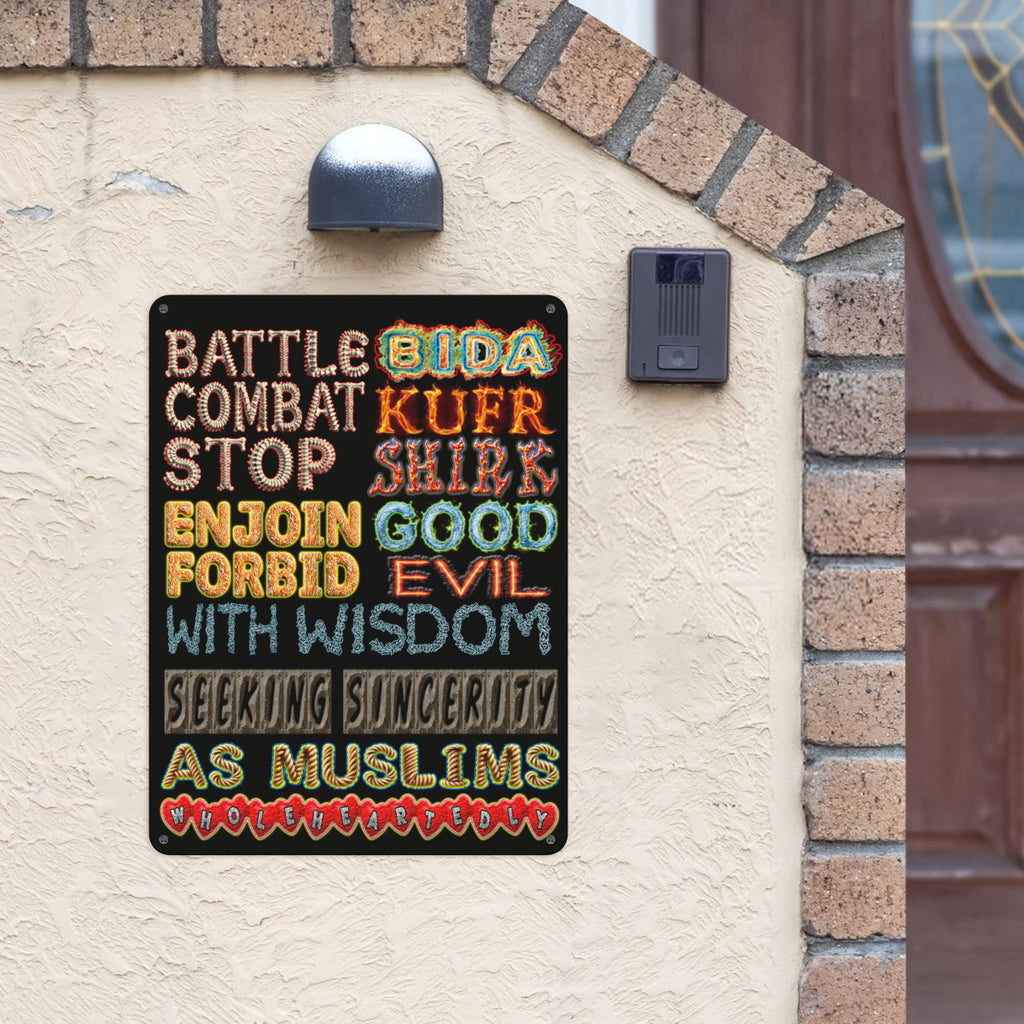 BATTLE BIDA
COMBAT KUFR
STOP SHIRK
ENJOIN GOOD
FORBID EVIL
WITH WISDOM
SEEKING SINCERITY
AS MUSLIMS
WHOLEHEARTEDLY